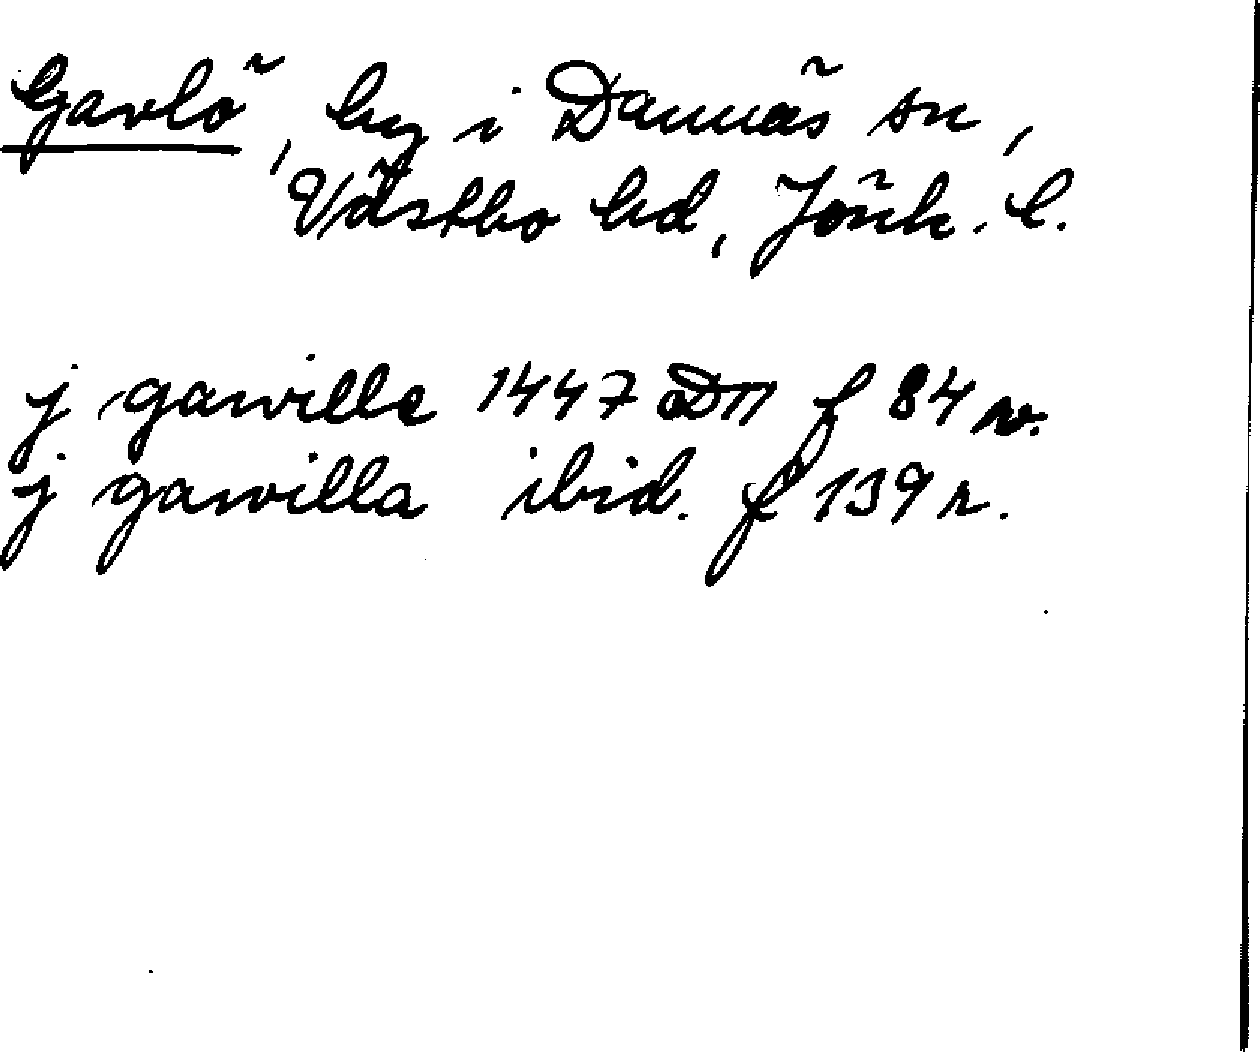 Gavlö, by i Dannäs sn,
Västbo hd, Jönk. l.
j gawille 1447 DII f 84 v.
j gawilla ibid. f 139 r.